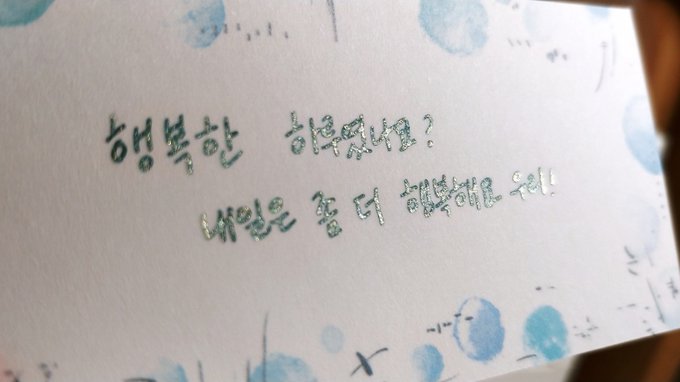 행복한 하루였나요?
내일은 좀 더 행복해요 우리!